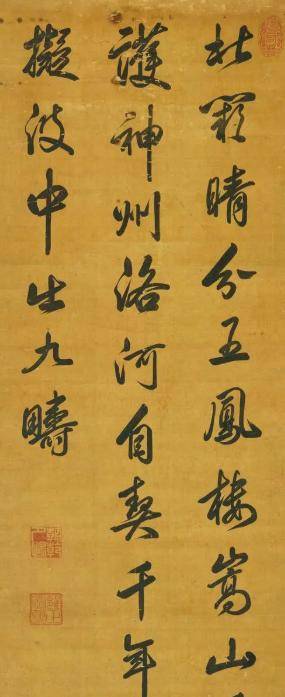 北闕晴分五鳳樓嵩山
護神州洛河自契千年
擬波中出九疇